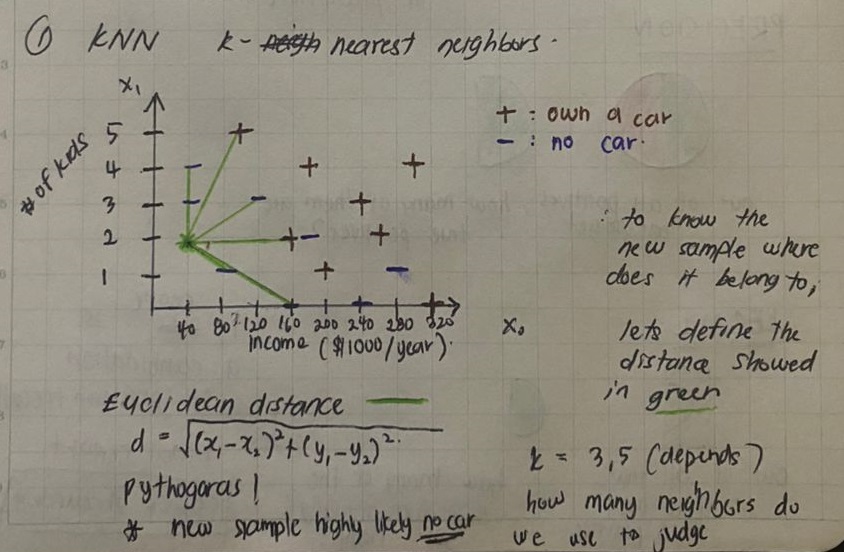 ① KNN k- neigh nearest neighbors.
x₁
+ : own a car
- : no car.
# of kids
5
4
3
2
1
40 80 120 160 200 240 280 320
x₀
income ($1000/year).
: to know the
new sample where
does it belong to,
lets define the
distance showed
in green
Euclidean distance
d = √(x₁-x₂)²+(y₁-y₂)².
pythogoras!
* new sample highly likely no car
k = 3,5 (depends)
how many neighbors do
we use to judge